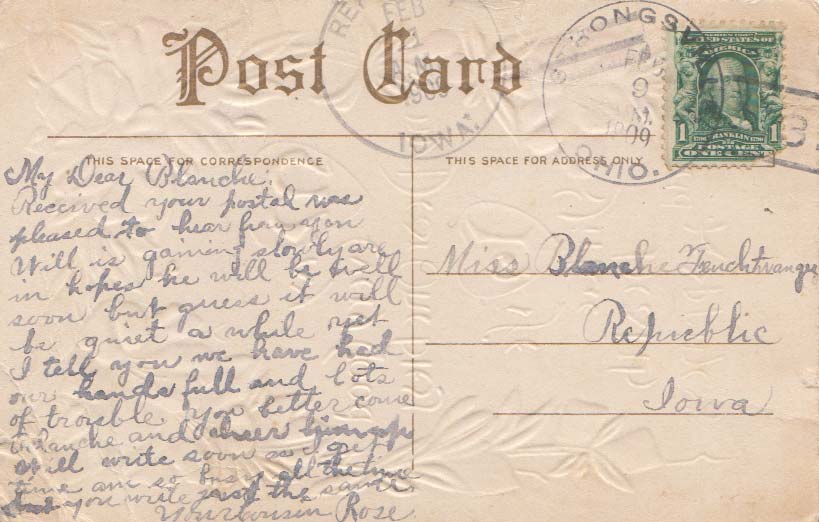 Post Card
FEB
A.M.
1909
IOWA.
STRONGSV
FEB
9
M.
1909
OHIO.
SERIES 1902
UNITED STATES OF
AMERICA
1 FRANKLIN 1
POSTAGE
ONE CENT
THIS SPACE FOR CORRESPONDENCE
THIS SPACE FOR ADDRESS ONLY
My Dear Blanche.
Received your postal was
pleased to hear from you
Will is gaining slowly are
in hopes he will be well
soon but guess it will
be quiet a while yet
I tell you we have had
our hands full and lots
of trouble you better come
Blanche and cheer him up
Will write soon as I get
time am so busy all the time
but you write just the same.
Your cousin Rose.
Miss Blanche Feuchtwanger
Republic
Iowa